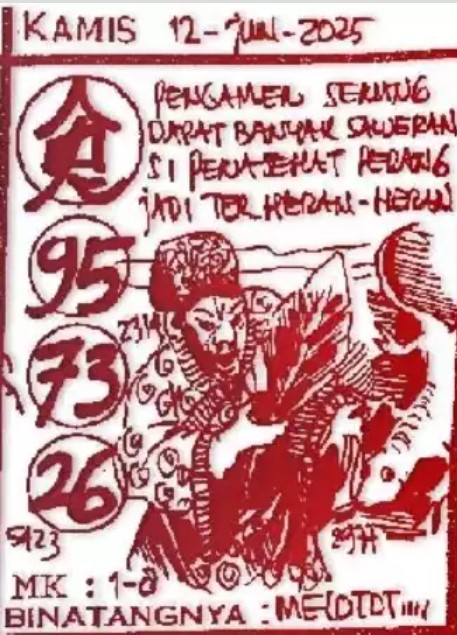 KAMIS 12-JUN-2025
PENGAMEN SERING
DAPAT BANYAK SAWERAN
SI PENASEHAT PERANG
JADI TER HERAN-HERAN
95
73
26
5123
MK : 1-8
BINATANGNYA : MELOTOT